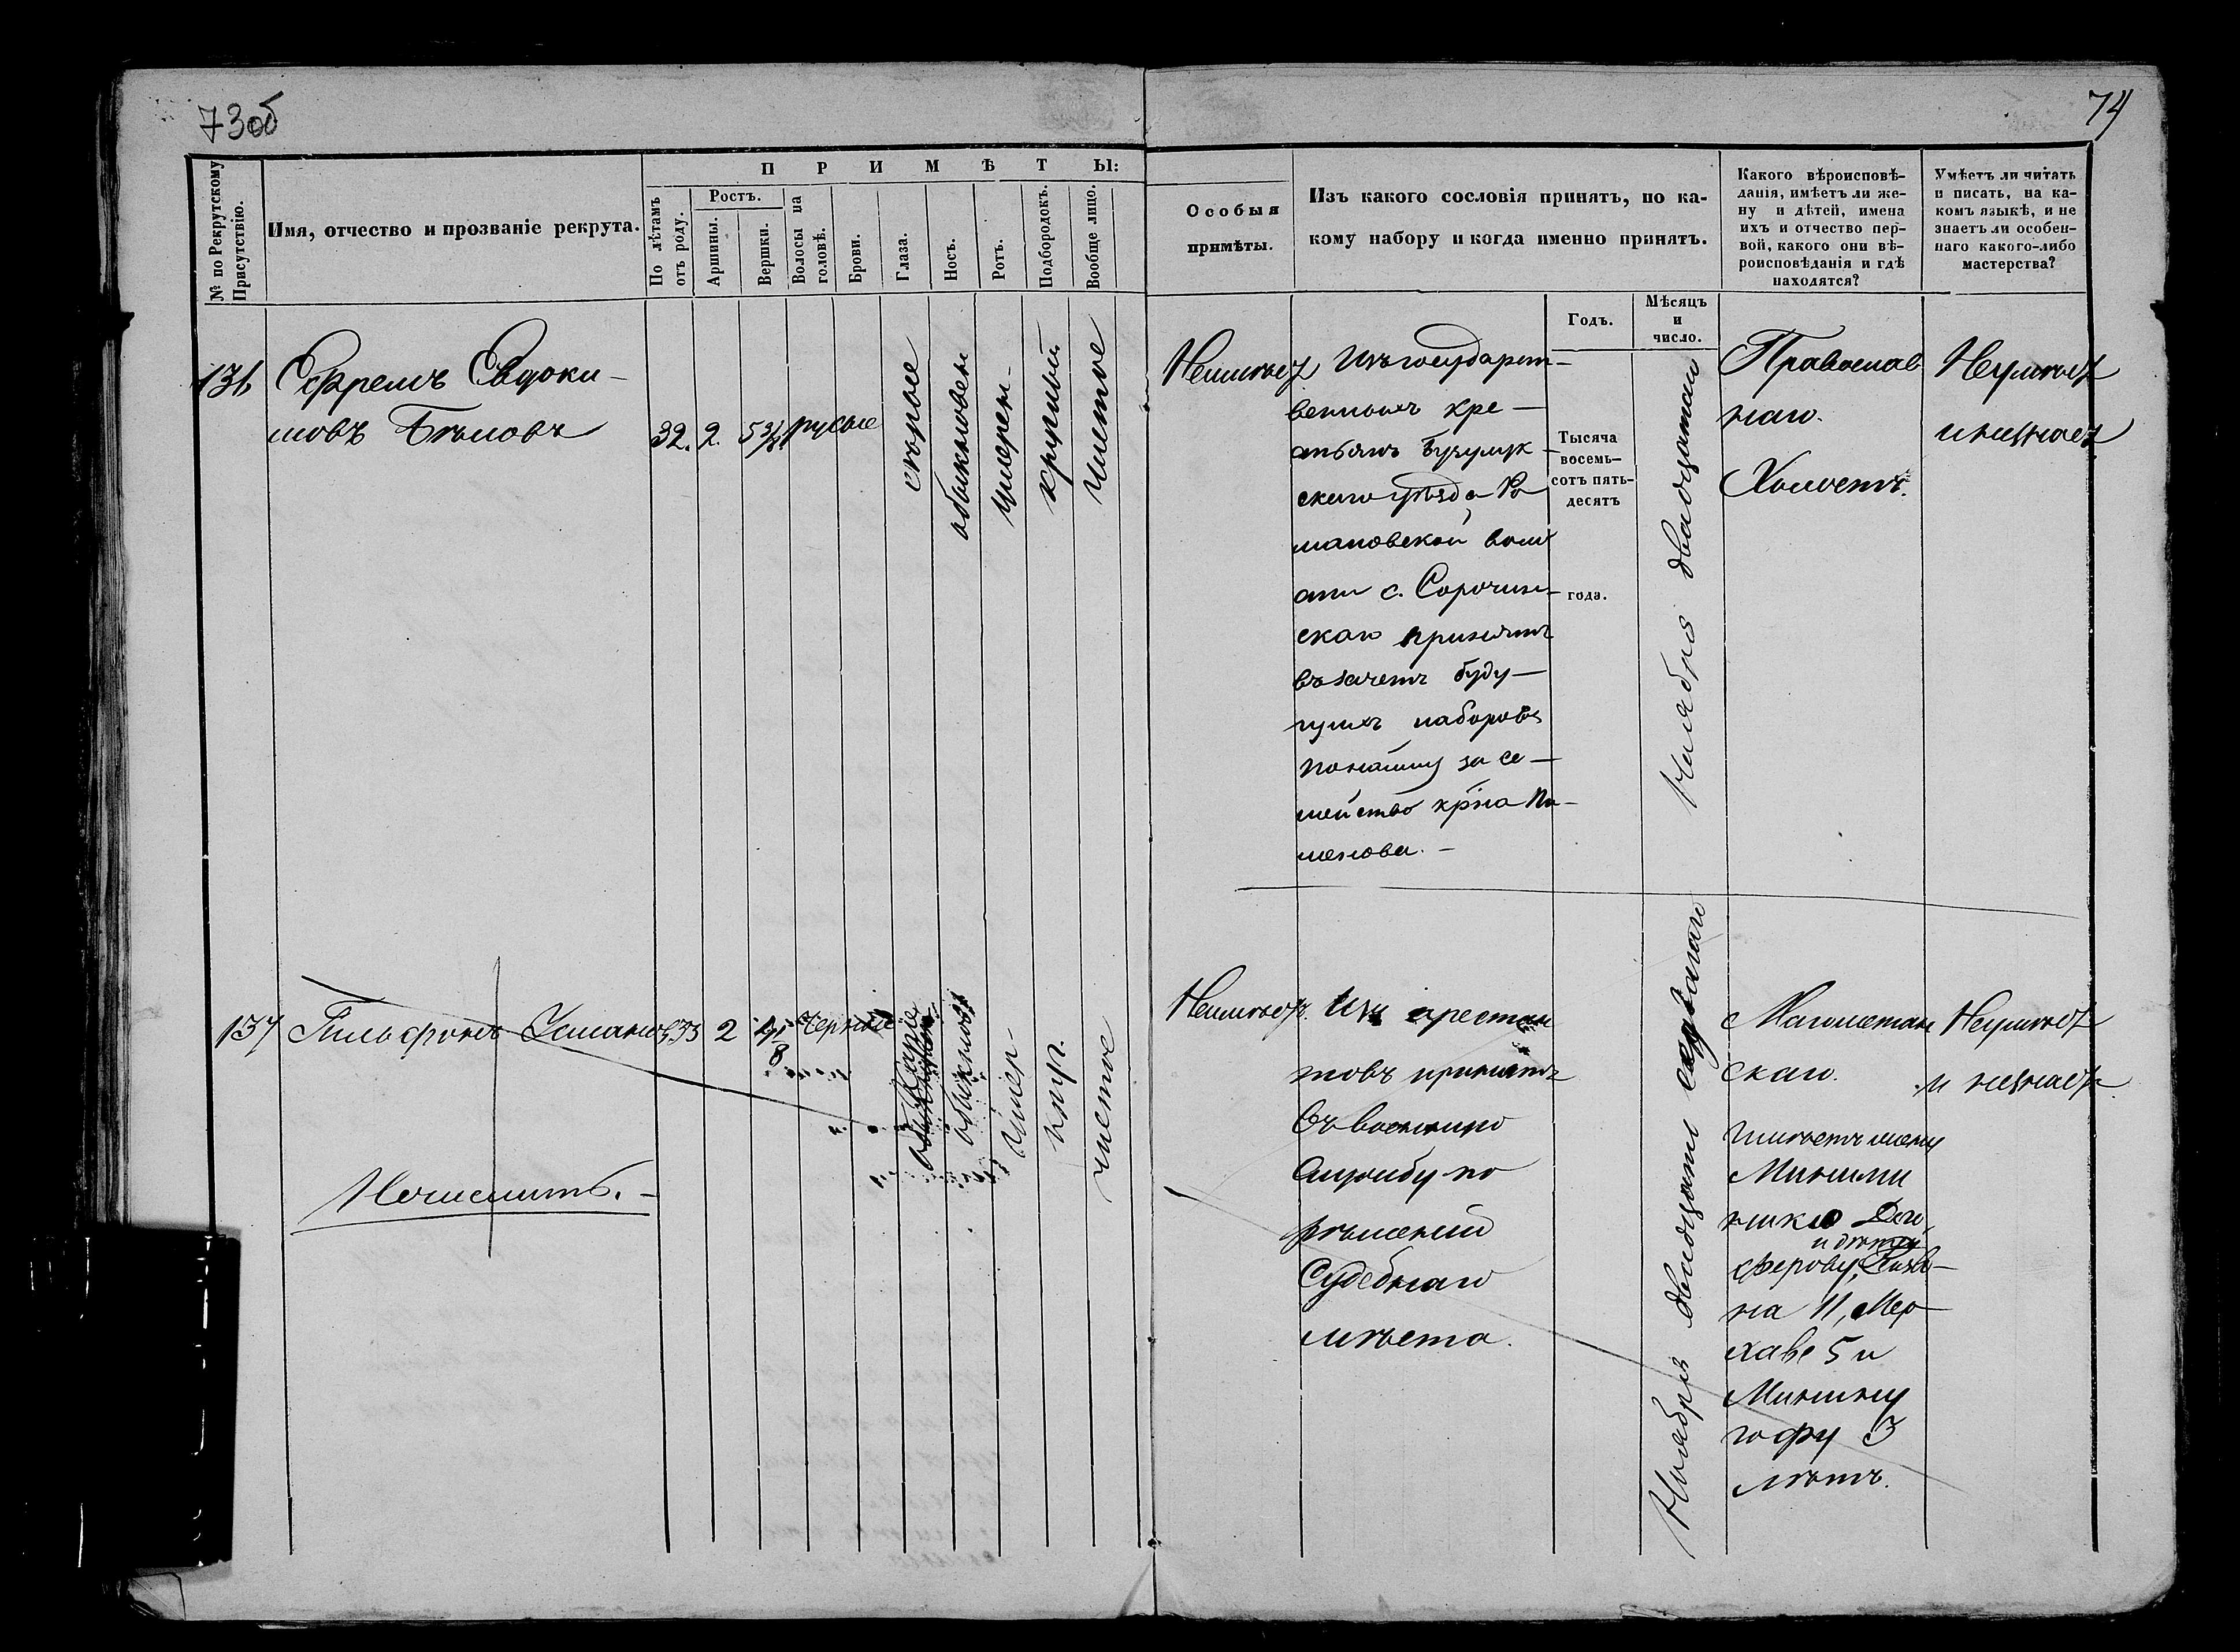 73об
74
№ по Рекрутскому Присутствію.
Имя, отчество и прозваніе рекрута.
ПРИМѢТЫ:
По лѣтамъ отъ роду.
Ростъ.
Аршины.
Вершки.
Волосы на головѣ.
Брови.
Глаза.
Носъ.
Ротъ.
Подбородокъ.
Вообще лицо.
Особыя
примѣты.
Изъ какого сословія принятъ, по ка-
кому набору и когда именно принятъ.
Годъ.
Мѣсяцъ
и
число.
Какого вѣроисповѣ-
данія, имѣетъ ли же-
ну и дѣтей, имена
ихъ и отчество пер-
вой, какого они вѣ-
роисповѣданія и гдѣ
находятся?
Умѣетъ ли читать
и писать, на ка-
комъ языкѣ, и не
знаетъ ли особен-
наго какого-либо
мастерства?
136
Ефремъ Евдоки-
мовъ Бѣловъ
32.
2.
5 3/8
русые
сѣрые
обыкновен
умерен-
круглый
чистое
Неимѣетъ
Изъ государст-
венныхъ кре-
стьянъ Бузулук-
скаго уѣзда Ро
мановской воло
сти с. Сорочин-
скаго принятъ
въ зачетъ буду-
щихъ наборовъ
по найму за се-
мейство кр̃на
Тысяча
восемь-
сотъ пять-
десятъ
года.
Ноября двадцатаго
Православ
наго.
Холостъ.
Неумѣетъ
и незнаетъ
137
Усмановъ
33
2
4 1/8
черные
карие
обыкновен
умер-
кругл.
чистое
Неимѣетъ.
Изъ арестан
товъ принятъ
въ военную
службу по
рѣшенію
Судебнаго
мѣста.
Ноября двадцать седьмаго
Магометан
скаго.
имѣетъ жену
и дѣтей
на 11, Мер
хаве 5 и
3
лѣтъ.
Неумѣетъ
и незнаетъ.